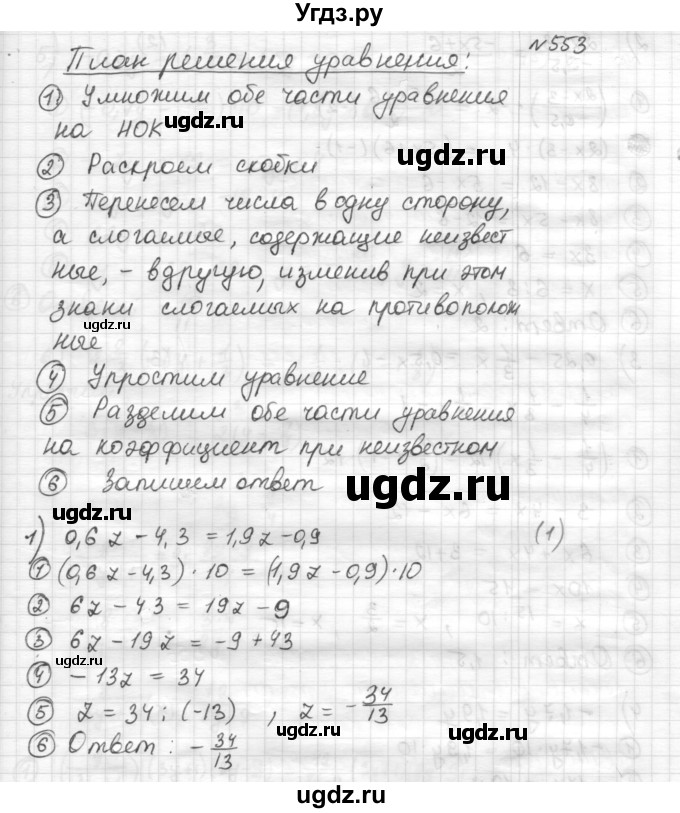 Угдз.ру
№553
План решения уравнения:
① Умножим обе части уравнения
на НОК
ugdz.ru
ugdz.ru
② Раскроем скобки
③ Перенесем числа в одну сторону,
а слогаемые, содержащие неизвест
ные, - в другую, изменив при этом
знаки слогаемых на противополож
ugdz.ru
ные
④ Упростим уравнение
⑤ Разделим обе части уравнения
на коэффициент при неизвестном
⑥ Запишем ответ ugdz.ru
ugdz.ru
1) 0,6z - 4,3 = 1,9z - 0,9 (1)
① (0,6z - 4,3) · 10 = (1,9z - 0,9) · 10
② 6z - 43 = 19z - 9
③ 6z - 19z = -9 + 43
ugdz.ru
④ - 13z = 34
⑤ z = 34 : (-13) , z = - 34/13
ugdz.ru
⑥ Ответ : - 34/13
ugdz.ru